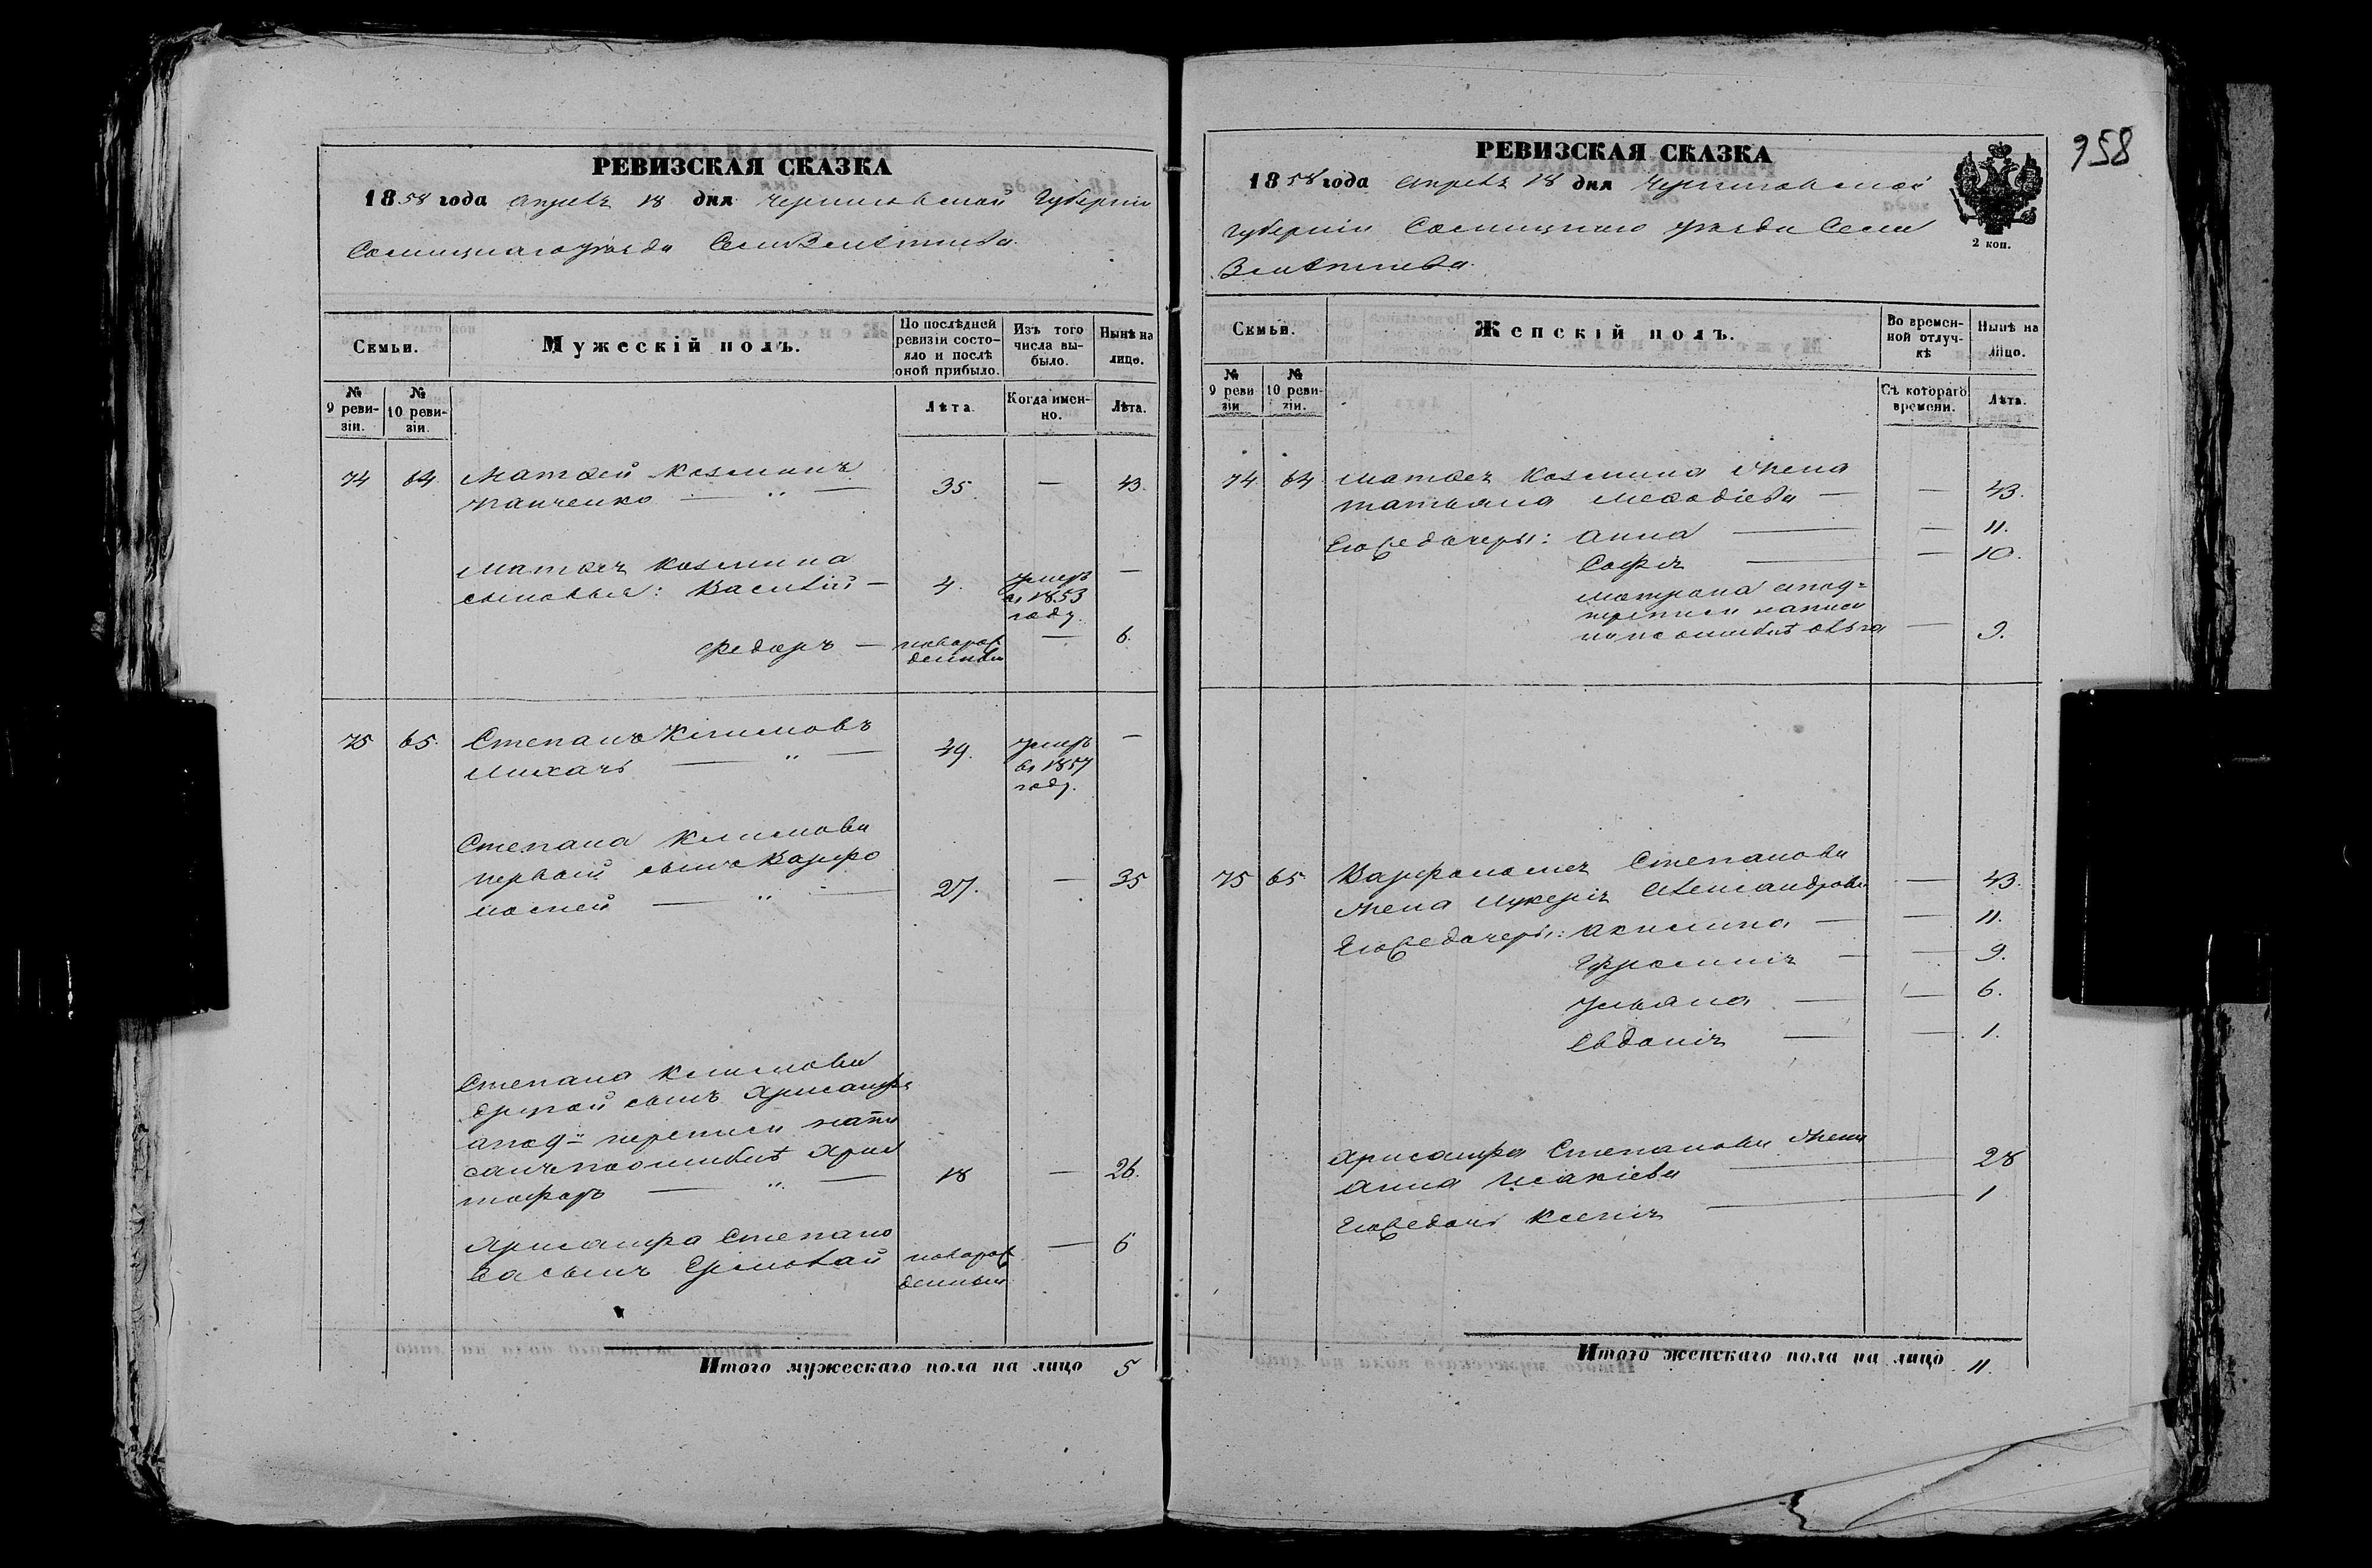 РЕВИЗСКАЯ СКАЗКА
1858 года Апреля 18 дня Черниговской Губерніи
Сосницкаго уѣзда Села
Семьи.
Мужескій полъ.
По послѣдней ревизіи состояло и послѣ оной прибыло.
Изъ того числа выбыло.
Нынѣ на лицо.
№ 9 ревизіи.
№ 10 ревизіи.
Лѣта.
Когда именно.
Лѣта.
74 64 Матвей Козминъ
Панченко — „ — 35. — 43.
Матвея Козмина
сыновья: Василій — 4. умеръ въ 1853 году. —
Федоръ — новорожденный — 6.
75 65. Степанъ Климовъ
Михачь — „ — 49. умеръ въ 1857 году. —
Степана Климова
первый сынъ Варфо
ломей — „ — 27. — 35
Степана Климова
другой сынъ Хрисанфъ
а по 9й переписи напи
санъ по ошибкѣ Хрис
тофоръ — „ — 18 — 26.
Хрисанфа Степано
ва сынъ Ермолай новорожденный — 6
Итого мужескаго пола на лицо 5
958
РЕВИЗСКАЯ СКАЗКА
1858 года Апреля 18 дня Черниговской
Губерніи Сосницкаго уѣзда Села
2 коп.
Семьи.
Женскій полъ.
Во временной отлучкѣ
Нынѣ на лицо.
№ 9 ревизіи
№ 10 ревизіи.
Съ котораго времени.
Лѣта.
74 64 Матвея Козмина жена
Татьяна Мефодіева — — 43.
Его дочеры: Анна — — 11.
Софія — — 10.
Матрона а по 9й
переписи написа
на по ошибкѣ Ольга — 9.
75 65 Варфоломея Степанова
жена Лукерія Александрова — 43.
Его дочеры: Акилина — — 11.
Ефросинія — — 9.
Ульяна — — 6.
Евдокія — — 1.
Хрисанфа Степанова жена
Анна Исакіева — 28
Его дочь Ксенія — 1
Итого женскаго пола на лицо 11.